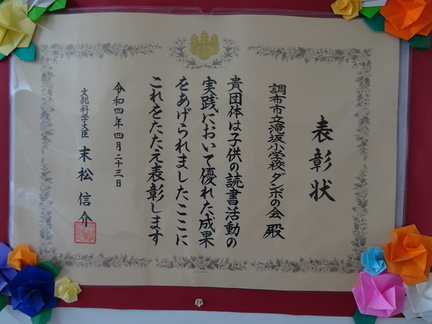 表彰状
調布市立滝坂小学校ダンボの会 殿
貴団体は子供の読書活動の
実践において優れた成果
をあげられましたここに
これをたたえ表彰します
令和四年四月二十三日
文部科学大臣 末松信介